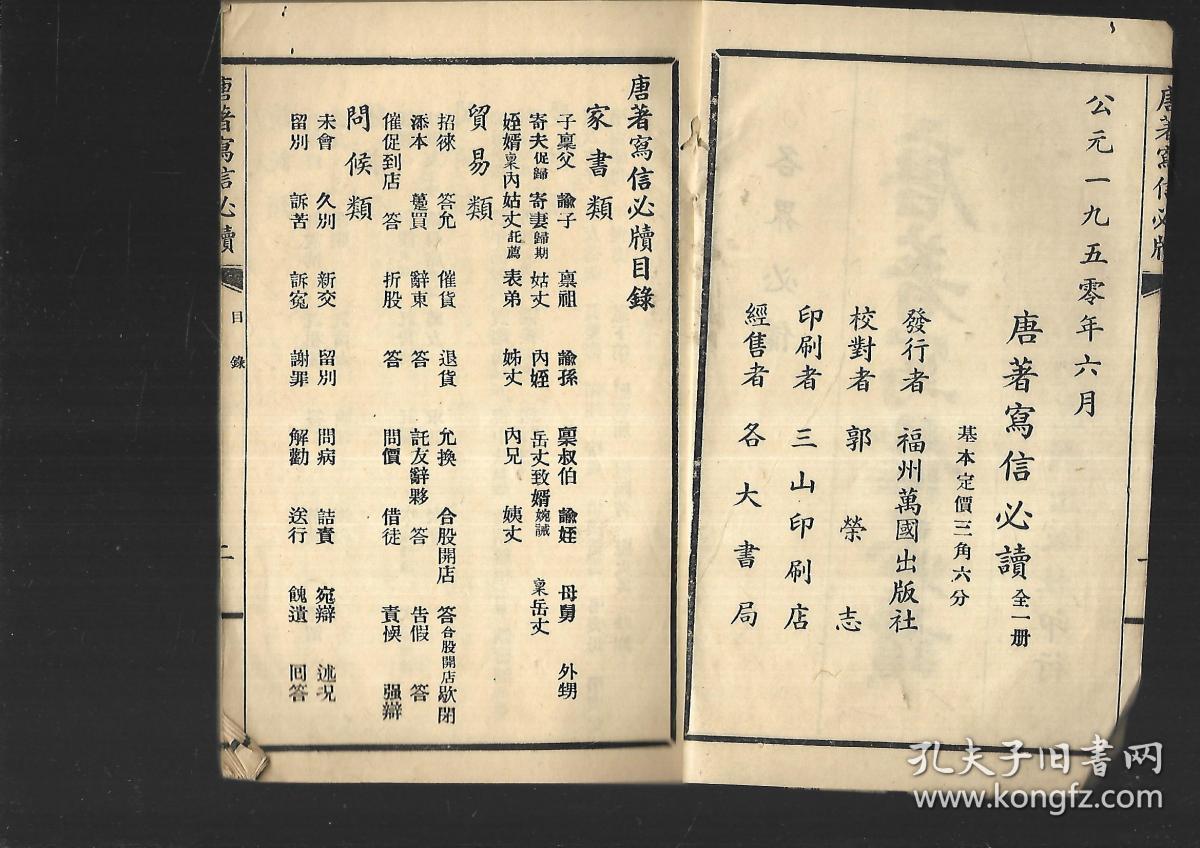 唐著寫信必牘
公元一九五零年六月
唐著寫信必讀 全一册
基本定價三角六分
發行者 福州萬國出版社
校對者 郭榮志
印刷者 三山印刷店
經售者 各大書局
唐著寫信必牘目錄
家書類
子稟父 諭子 稟祖 諭孫 稟叔伯 諭姪 母舅 外甥
寄夫促歸 寄妻歸期 姑丈 內姪 岳丈致婿婉誡 稟岳丈
姪婿稟內姑丈託薦 表弟 姊丈 內兄 姨丈
貿易類
招徠 答允 催貨 退貨 允換 合股開店 答合股開店 歇閉
添本 躉買 辭東 答 託友辭夥 答 告假 答
催促到店 答 折股 答 問價 借徒 責悞 强辯
問候類
未會 久別 新交 留別 問病 詰責 宛辯 述况
留別 訴苦 訴寃 謝罪 解勸 送行 餽遺 回答
唐著寫信必牘
目錄
二
孔夫子旧书网
www.kongfz.com